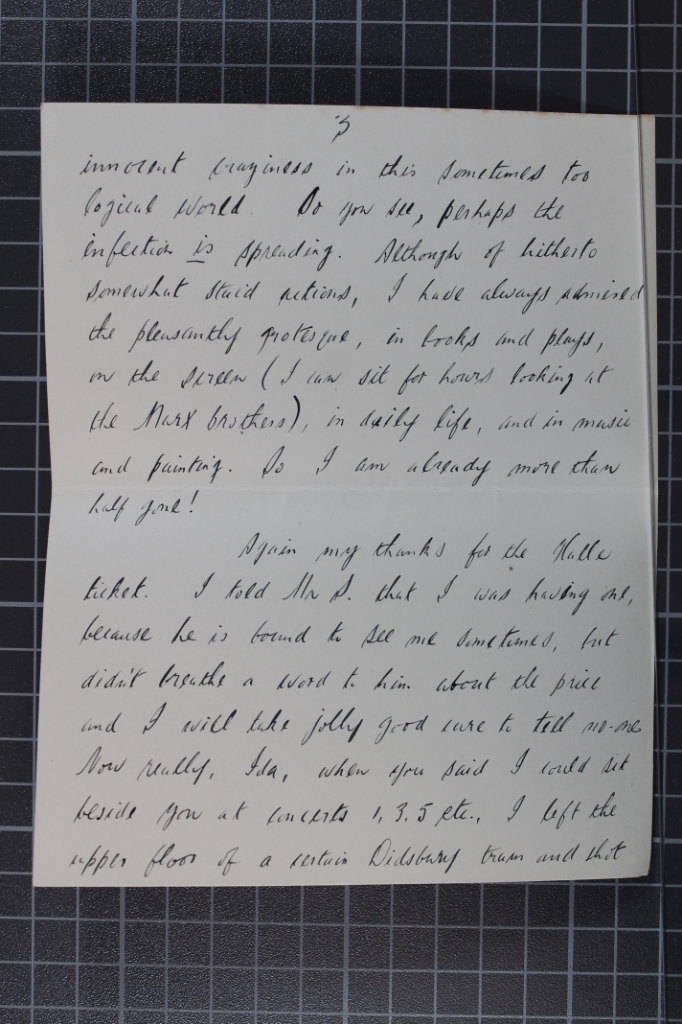 3
innocent craziness in this sometimes too
logical world. Do you see, perhaps the
infection is spreading. Although of hitherto
somewhat staid actions, I have always admired
the pleasantly grotesque, in books and plays,
on the screen (I can sit for hours looking at
the Marx brothers), in daily life, and in music
and painting. So I am already more than
half gone!
Again my thanks for the Halle
ticket. I told Mr S. that I was having one,
because he is bound to see me sometimes, but
didn't breathe a word to him about the price
and I will take jolly good care to tell no-one
Now really, Ida, when you said I could sit
beside you at concerts 1, 3, 5 etc., I left the
upper floor of a certain Didsbury tram and shot